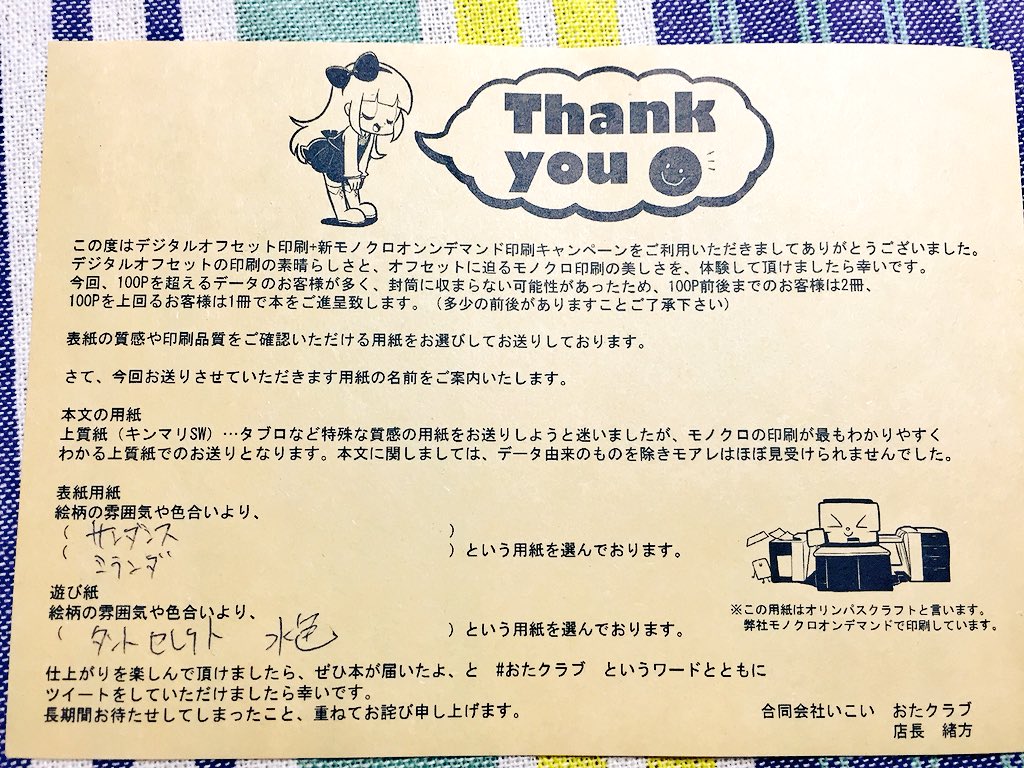 Thank
you
この度はデジタルオフセット印刷+新モノクロオンンデマンド印刷キャンペーンをご利用いただきましてありがとうございました。
デジタルオフセットの印刷の素晴らしさと、オフセットに迫るモノクロ印刷の美しさを、体験して頂けましたら幸いです。
今回、100Pを超えるデータのお客様が多く、封筒に収まらない可能性があったため、100P前後までのお客様は2冊、
100Pを上回るお客様は1冊で本をご進呈致します。（多少の前後がありますことご了承下さい）
表紙の質感や印刷品質をご確認いただける用紙をお選びしてお送りしております。
さて、今回お送りさせていただきます用紙の名前をご案内いたします。
本文の用紙
上質紙（キンマリSW）…タブロなど特殊な質感の用紙をお送りしようと迷いましたが、モノクロの印刷が最もわかりやすく
わかる上質紙でのお送りとなります。本文に関しましては、データ由来のものを除きモアレはほぼ見受けられませんでした。
表紙用紙
絵柄の雰囲気や色合いより、
（ サンダンス ）
（ ミランダ ）という用紙を選んでおります。
遊び紙
絵柄の雰囲気や色合いより、
（ タントセレクト 水色 ）という用紙を選んでおります。
※この用紙はオリンパスクラフトと言います。
弊社モノクロオンデマンドで印刷しています。
仕上がりを楽しんで頂けましたら、ぜひ本が届いたよ、と #おたクラブ というワードとともに
ツイートをしていただけましたら幸いです。
長期間お待たせしてしまったこと、重ねてお詫び申し上げます。
合同会社いこい おたクラブ
店長 緒方